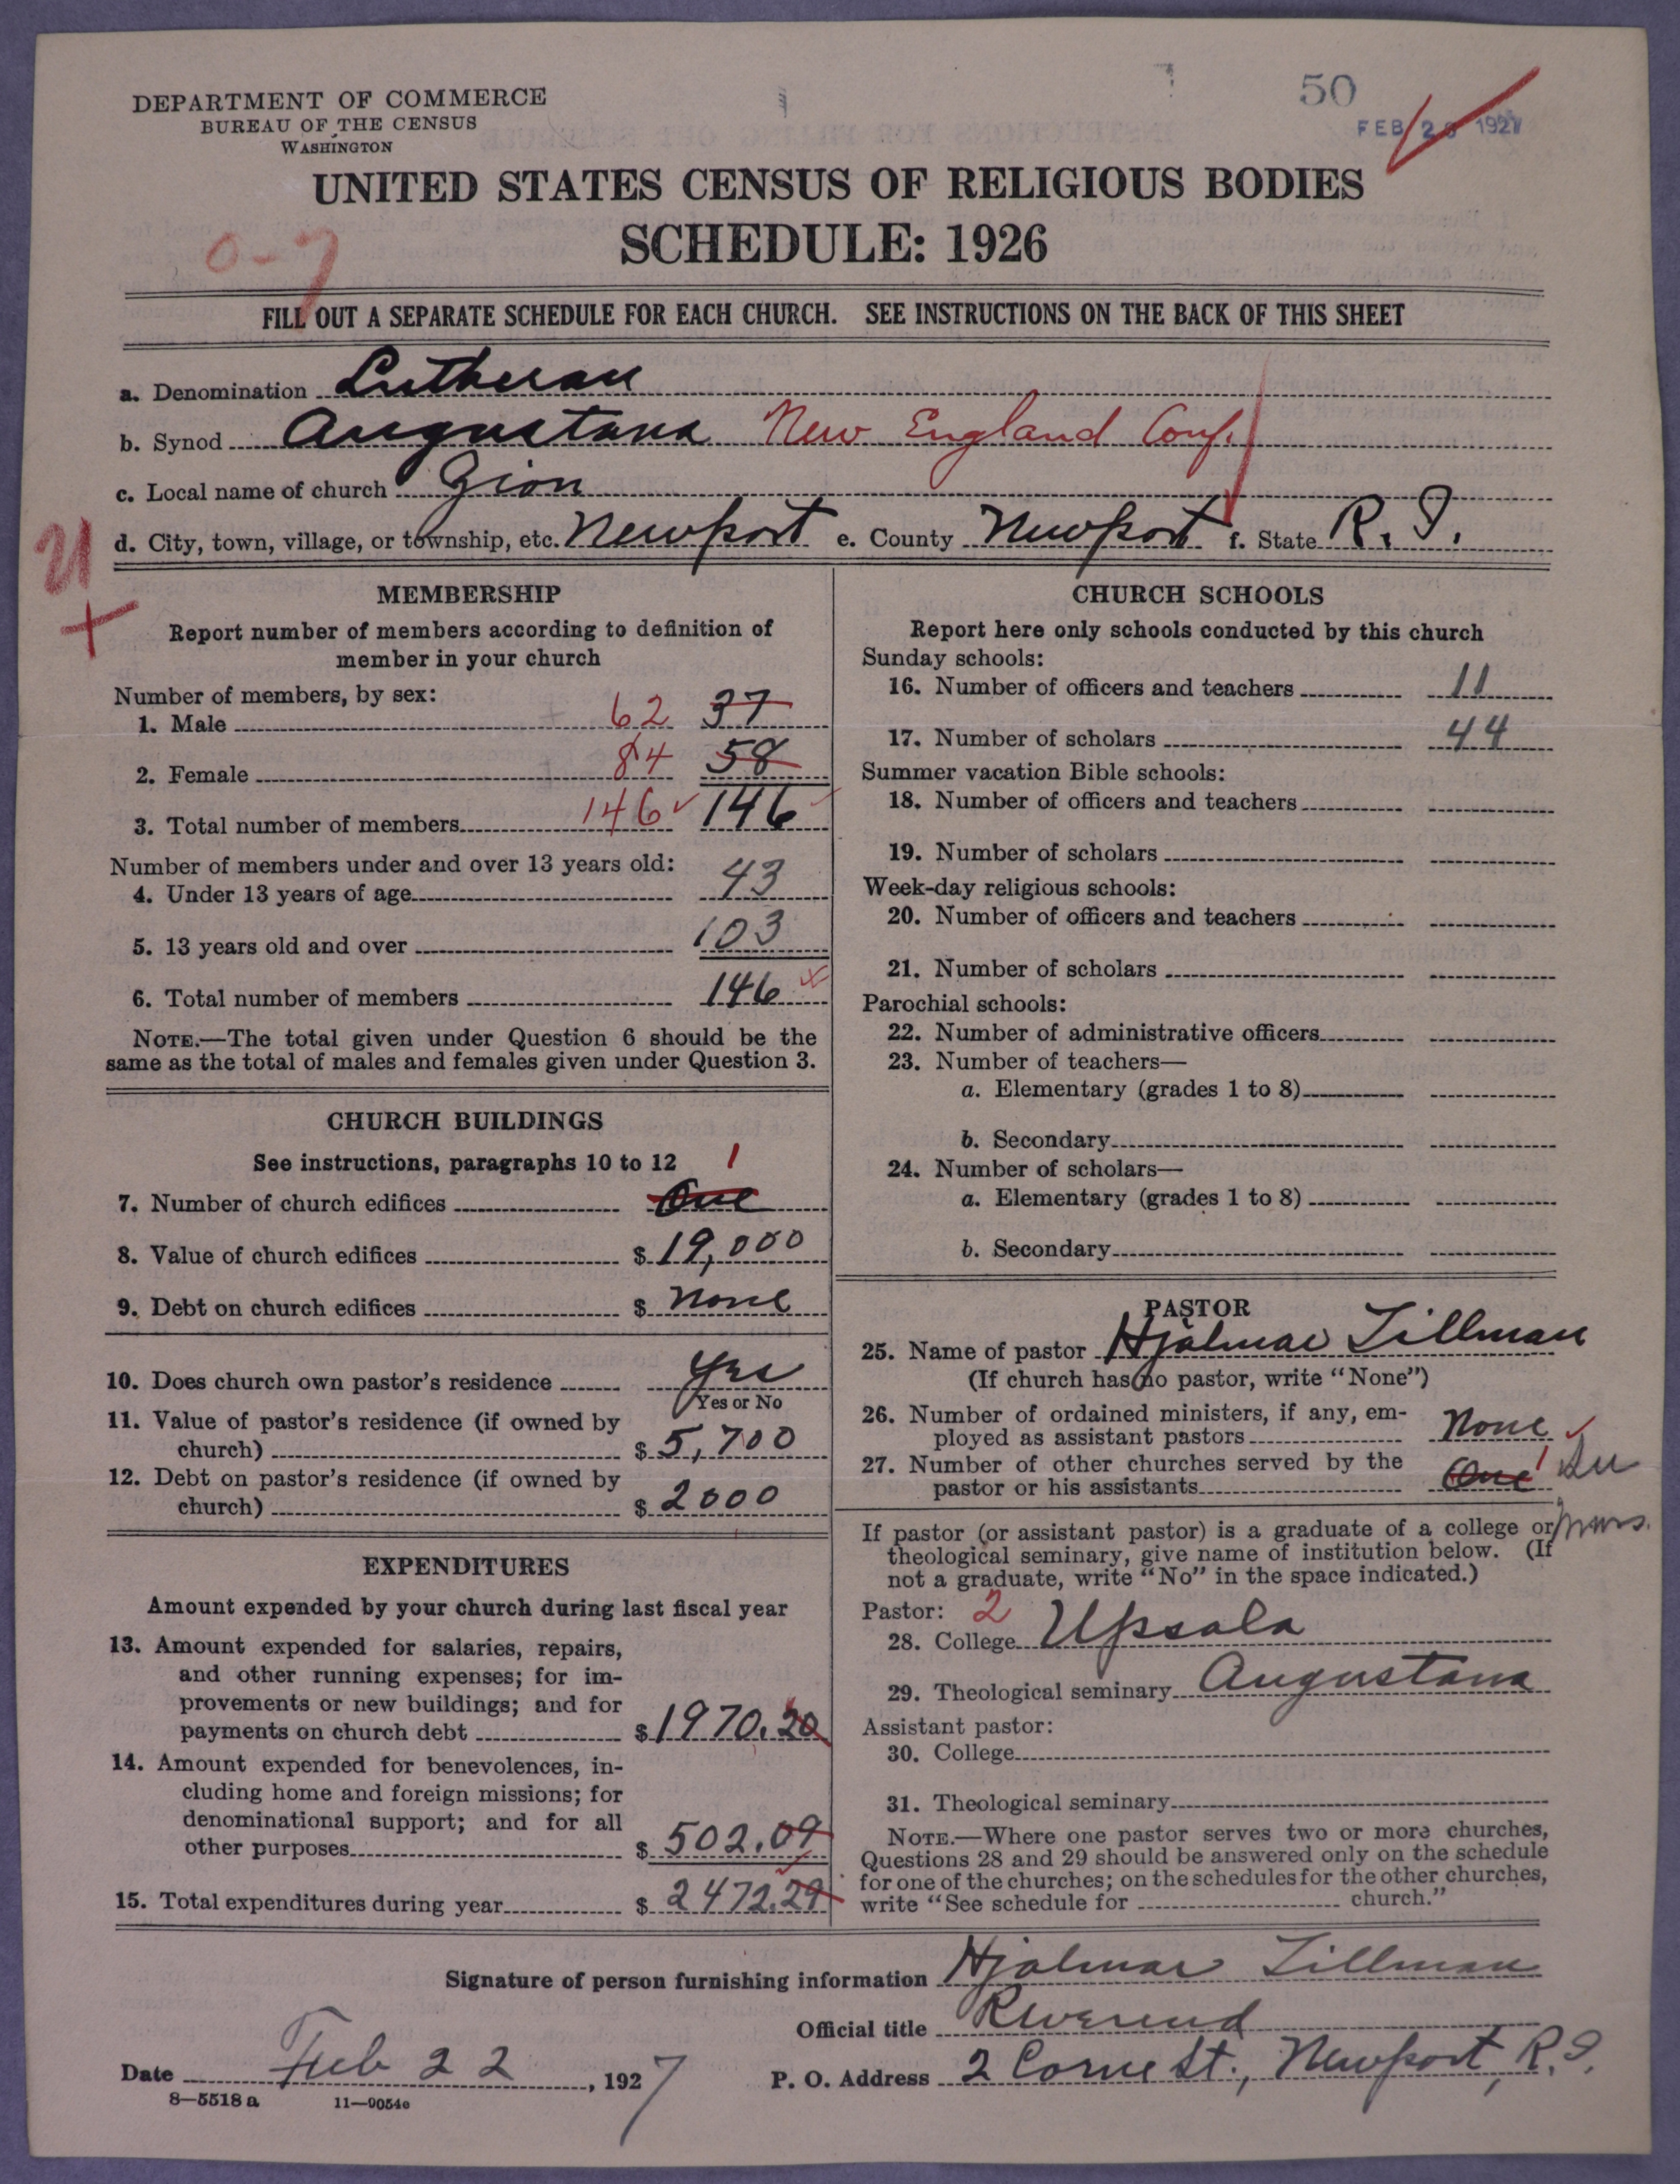 DEPARTMENT OF COMMERCE
BUREAU OF THE CENSUS
WASHINGTON
50
FEB 2 1927
UNITED STATES CENSUS OF RELIGIOUS BODIES
SCHEDULE: 1926
0-7
FILL OUT A SEPARATE SCHEDULE FOR EACH CHURCH. SEE INSTRUCTIONS ON THE BACK OF THIS SHEET
a. Denomination Lutheran
b. Synod Augustana New England Conf.
c. Local name of church Zion
d. City, town, village, or township, etc. Newport e. County Newport f. State R. I.
21
+
MEMBERSHIP
Report number of members according to definition of
member in your church
Number of members, by sex:
1. Male 62 37
2. Female 84 58
3. Total number of members 146 146
Number of members under and over 13 years old:
4. Under 13 years of age 43
5. 13 years old and over 103
6. Total number of members 146
NOTE.—The total given under Question 6 should be the
same as the total of males and females given under Question 3.
CHURCH BUILDINGS
See instructions, paragraphs 10 to 12 1
7. Number of church edifices One
8. Value of church edifices $ 19,000
9. Debt on church edifices $ none
10. Does church own pastor's residence Yes
Yes or No
11. Value of pastor's residence (if owned by
church) $ 5,700
12. Debt on pastor's residence (if owned by
church) $ 2000
EXPENDITURES
Amount expended by your church during last fiscal year
13. Amount expended for salaries, repairs,
and other running expenses; for im-
provements or new buildings; and for
payments on church debt $ 1970.20
14. Amount expended for benevolences, in-
cluding home and foreign missions; for
denominational support; and for all
other purposes $ 502.09
15. Total expenditures during year $ 2472.29
CHURCH SCHOOLS
Report here only schools conducted by this church
Sunday schools:
16. Number of officers and teachers 11
17. Number of scholars 44
Summer vacation Bible schools:
18. Number of officers and teachers
19. Number of scholars
Week-day religious schools:
20. Number of officers and teachers
21. Number of scholars
Parochial schools:
22. Number of administrative officers
23. Number of teachers—
a. Elementary (grades 1 to 8)
b. Secondary
24. Number of scholars—
a. Elementary (grades 1 to 8)
b. Secondary
PASTOR
25. Name of pastor Hjalmar Tillman
(If church has no pastor, write "None")
26. Number of ordained ministers, if any, em-
ployed as assistant pastors None
27. Number of other churches served by the
pastor or his assistants One 1
If pastor (or assistant pastor) is a graduate of a college or
theological seminary, give name of institution below. (If
not a graduate, write "No" in the space indicated.)
Pastor: 2
28. College Upsala
29. Theological seminary Augustana
Assistant pastor:
30. College
31. Theological seminary
NOTE.—Where one pastor serves two or more churches,
Questions 28 and 29 should be answered only on the schedule
for one of the churches; on the schedules for the other churches,
write "See schedule for church."
Signature of person furnishing information Hjalmar Tillman
Official title Reverend
Date Feb 22, 1927 P. O. Address 2 Corne St., Newport, R. I.
8—5518 a 11—9054e